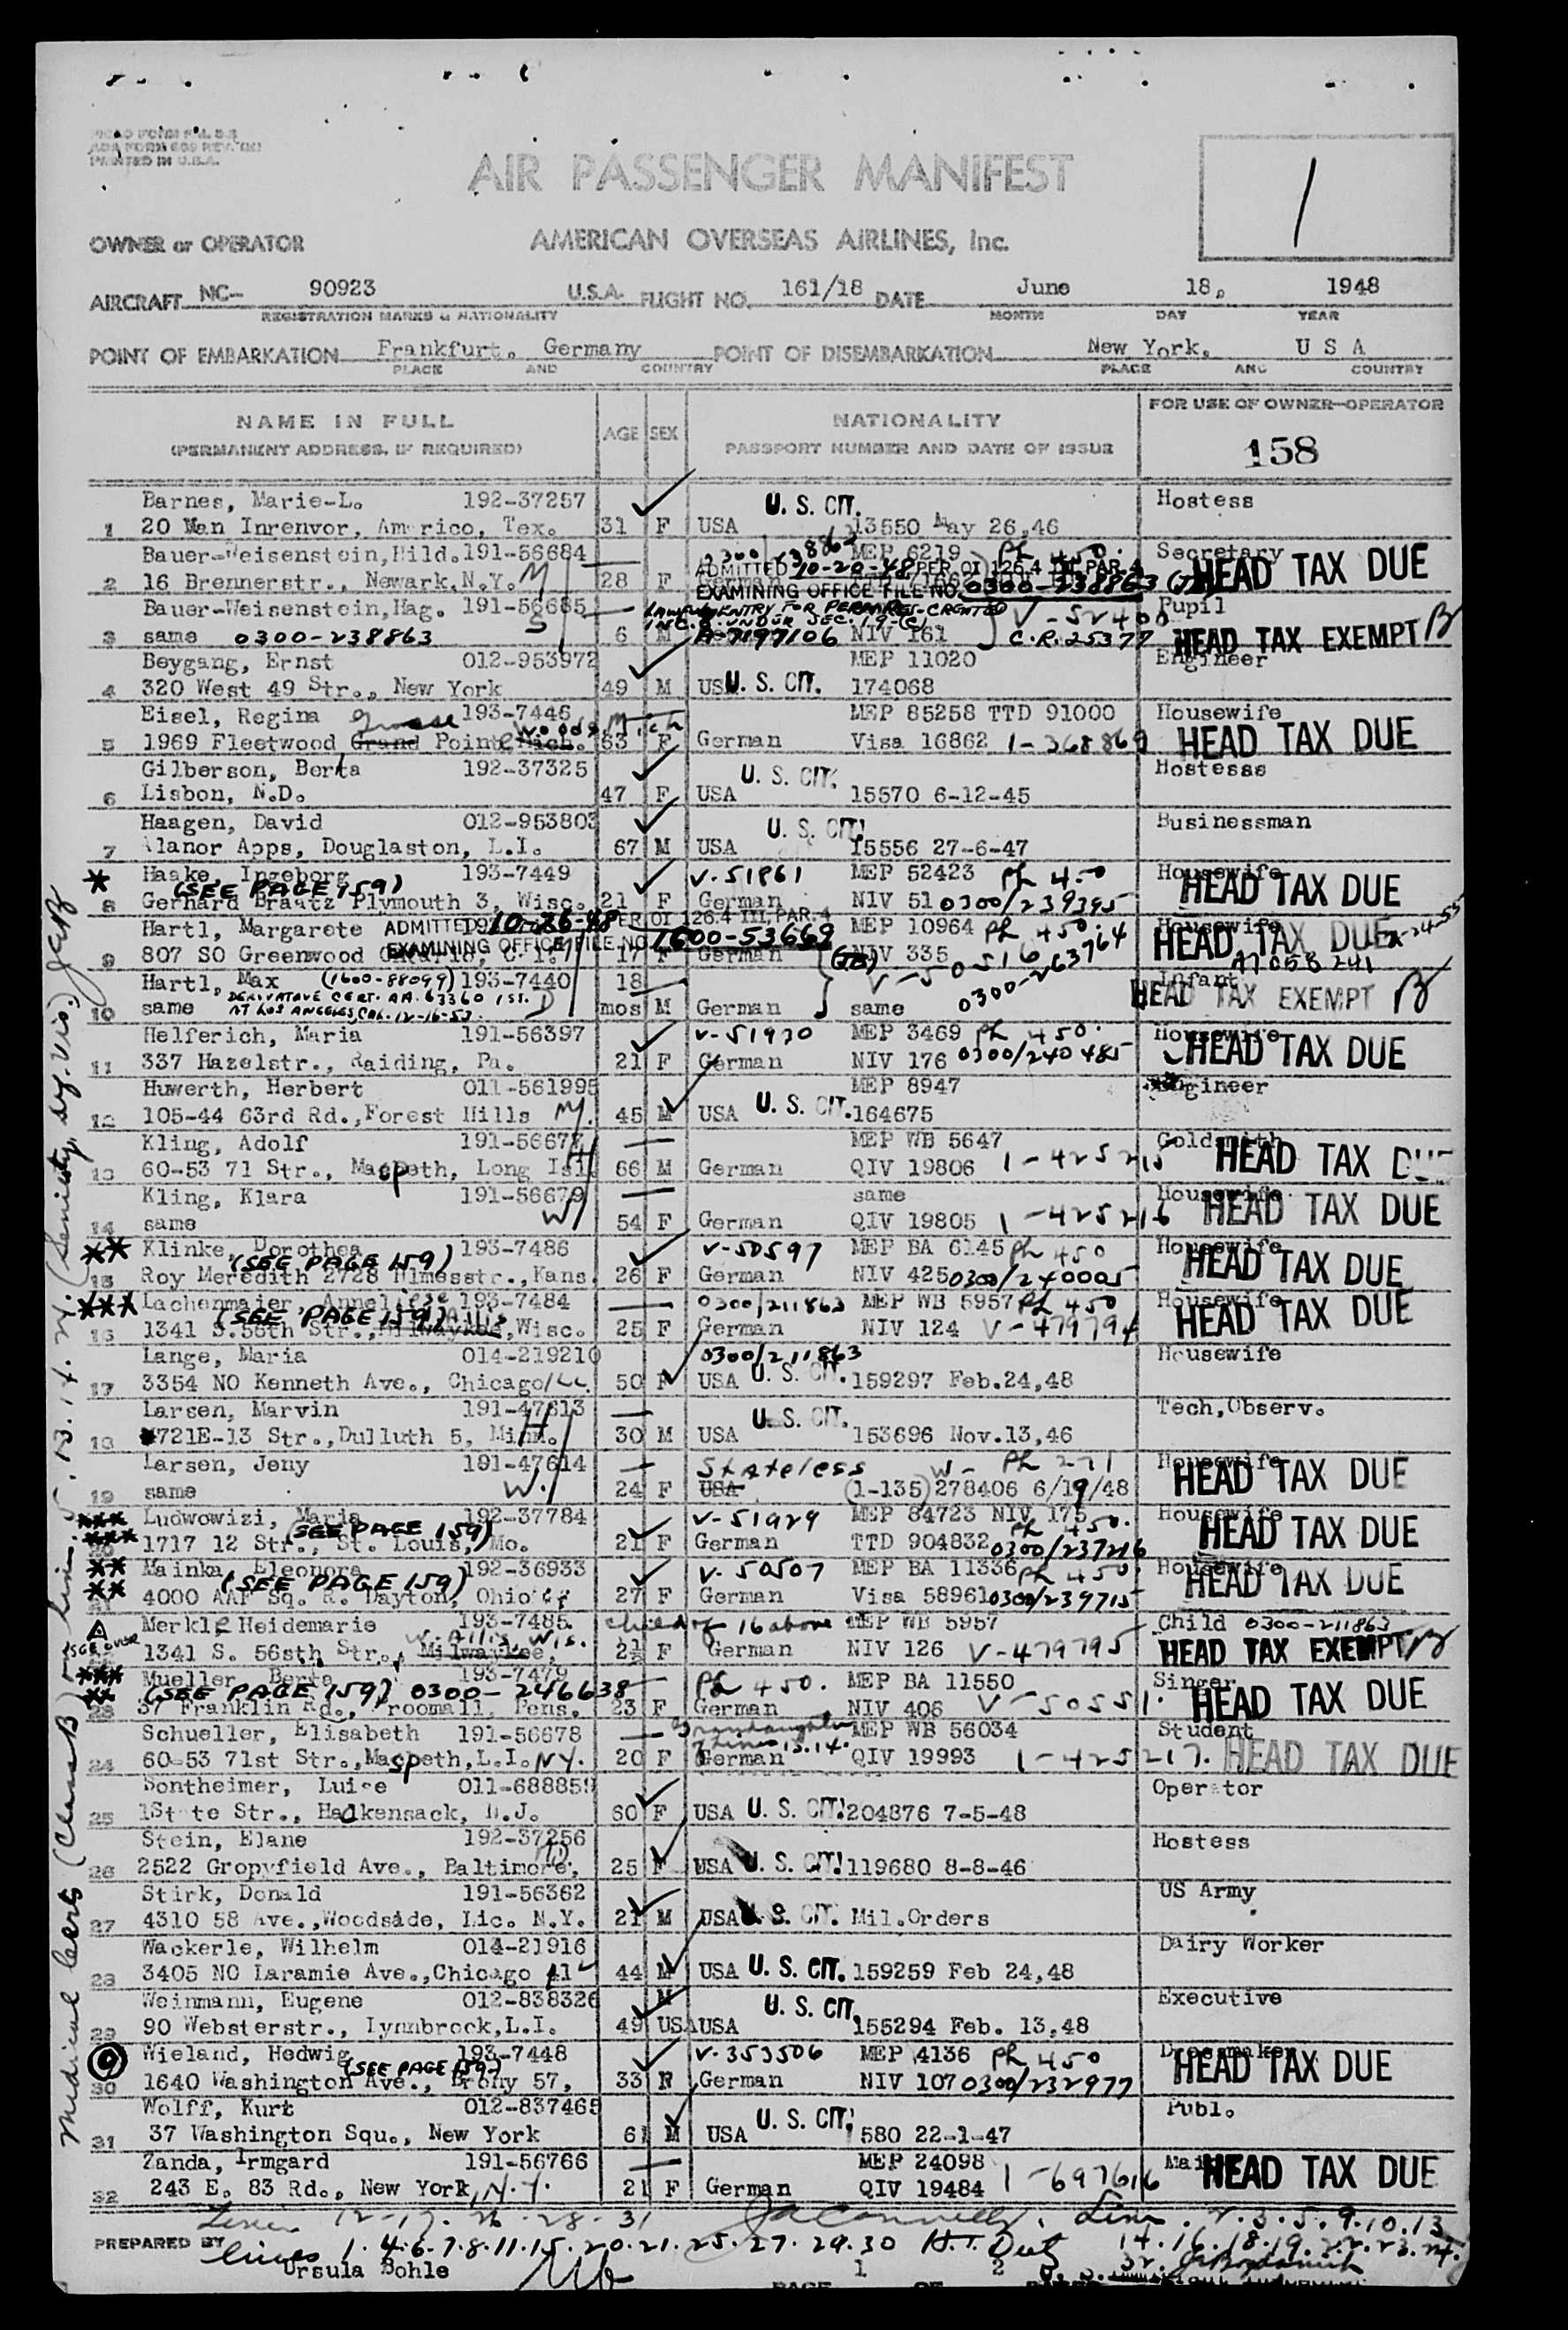 AIR PASSENGER MANIFEST
1
OWNER or OPERATOR AMERICAN OVERSEAS AIRLINES, Inc.
AIRCRAFT NC- 90923 U.S.A. FLIGHT NO. 161/18 DATE June 18, 1948
REGISTRATION MARKS & NATIONALITY MONTH DAY YEAR
POINT OF EMBARKATION Frankfurt. Germany POINT OF DISEMBARKATION New York, U S A
PLACE AND COUNTRY PLACE AND COUNTRY
NAME IN FULL AGE SEX NATIONALITY FOR USE OF OWNER-OPERATOR
(PERMANENT ADDRESS, IF REQUIRED) PASSPORT NUMBER AND DATE OF ISSUE 158
Barnes, Marie-L. 192-37257 U. S. CIT. Hostess
1 20 Man Inrenvor, Am rico, Tex. 31 F USA 13550 May 26,46
Bauer-Weisenstein,Hild. 191-56684 MEP 6219 Ph 450. Secretary
ADMITTED 10-20-48 PER OI 126.4 III, PAR.4 HEAD TAX DUE
2 16 Brennerstr., Newark,N.Y. M 28 F
EXAMINING OFFICE FILE NO. 0300-238863
Bauer-Weisenstein,Hag. 191-56685 V-52400 Pupil
3 same 0300-238863 6 M A-7197106 NIV 161 C.R. 25377 HEAD TAX EXEMPT
Beygang, Ernst 012-953972 MEP 11020 Engineer
4 320 West 49 Str., New York 49 M US U. S. CIT. 174068
Eisel, Regina 193-7446 MEP 85258 TTD 91000 Housewife
5 1969 Fleetwood Grand Pointe Mich. 53 F German Visa 16862 1-368869 HEAD TAX DUE
Gilberson, Berta 192-37325 U. S. CIT. Hostesss
6 Lisbon, N.D. 47 F USA 15570 6-12-45
Haagen, David 012-953803 U. S. CIT. Businessman
7 Alanor Apps, Douglaston, L.I. 67 M USA 15556 27-6-47
* Haake, Ingeborg 193-7449 V-51861 MEP 52423 Ph 450 Housewife
(SEE PAGE 159)
8 Gerhard Braatz Plymouth 3, Wisc. 21 F German NIV 51 0300/239395 HEAD TAX DUE
Hartl, Margarete ADMITTED 10-26-48 PER OI 126.4 III, PAR.4 MEP 10964 Ph 450. Housewife
EXAMINING OFFICE FILE NO. 1600-53669 HEAD TAX DUE
9 807 SO Greenwood 17 F German NIV 335 V-50516 A7058241
Hartl, Max (1600-88099) 193-7440 18 0300-263764 Infant
DERIVATIVE CERT. AA. 63360 ISS.
10 same AT LOS ANGELES, CAL. 12-16-53. mos M German same HEAD TAX EXEMPT
Helferich, Maria 191-56397 V-51930 MEP 3469 Ph 450. Housewife
11 337 Hazelstr., Raiding, Pa. 21 F German NIV 176 0300/240485 HEAD TAX DUE
Huwerth, Herbert 011-561995 MEP 8947 Engineer
12 105-44 63rd Rd.,Forest Hills 45 M USA U. S. CIT. 164675
Kling, Adolf 191-5667 MEP WB 5647 Goldsmith
13 60-53 71 Str., Maspeth, Long Isl 66 M German QIV 19806 1-425215 HEAD TAX DUE
Kling, Klara 191-56679 same Housewife
14 same W 54 F German QIV 19805 1-425216 HEAD TAX DUE
** Klinke, Dorothea 193-7486 V-50597 MEP BA 6145 Ph 450 Housewife
(SEE PAGE 159)
15 Roy Meredith 2728 Hlmesstr., Kans. 26 F German NIV 425 0300/240005 HEAD TAX DUE
*** Lachenmaier, Anneliese 193-7484 0300/211863 MEP WB 5957 Ph 450 Housewife
(SEE PAGE 159)
16 1341 S.56th Str., Milwaykee, Wisc. 25 F German NIV 124 V-479794 HEAD TAX DUE
Lange, Maria 014-219210 0300/211863 Housewife
17 3354 NO Kenneth Ave., Chicago/Ill. 50 F USA U. S. CIT. 159297 Feb.24,48
Larsen, Marvin 191-47613 U. S. CIT. Tech,Observ.
18 721E-13 Str.,Dulluth 5, Minn. 30 M USA 153696 Nov.13,46
Larsen, Jeny 191-47614 Stateless W- Ph 271 Housewife
19 same W. 24 F USA (1-135) 278406 6/19/48 HEAD TAX DUE
*** Ludwowizi, Maria 192-37784 V-51929 MEP 84723 NIV 175 Ph 450. Housewife
(SEE PAGE 159)
*** 1717 12 Str., St. Louis, Mo. 21 F German TTD 904832 0300/237216 HEAD TAX DUE
** Mainka, Eleonora 192-36933 V. 50507 MEP BA 11336 Ph 450. Housewife
(SEE PAGE 159)
** 4000 AAF Sq. R. Dayton, Ohio 27 F German Visa 58961 0300/239715 HEAD TAX DUE
Merkle Heidemarie 193-7485 child of 16 above MEP WB 5957 Child 0300-211863
SEE OVER W. Allis, Wis.
1341 S. 56sth Str., Milwaykee, 2½ F German NIV 126 V-479795 HEAD TAX EXEMPT
*** Mueller Berta 193-7479 Ph 450. MEP BA 11550 Singer
** (SEE PAGE 159) 0300-246638
23 37 Franklin Rd., roomall, Pens. 23 F German NIV 406 V-50551. HEAD TAX DUE
Schueller, Elisabeth 191-56678 Grandaughter MEP WB 56034 Student
of Lines 13.14.
24 60-53 71st Str.,Maspeth,L.I. N.Y. 20 F German QIV 19993 1-425217. HEAD TAX DUE
Sontheimer, Luise 011-688859 Operator
25 1State Str., Hackensack, N.J. 60 F USA U. S. CIT. 204876 7-5-48
Stein, Elane 192-37256 Hostess
26 2522 Gropyfield Ave., Baltimore, MD 25 F USA U. S. CIT. 119680 8-8-46
Stirk, Donald 191-56362 US Army
27 4310 58 Ave.,Woodside, Lic. N.Y. 21 M USA U. S. CIT. Mil.Orders
Wackerle, Wilhelm 014-21916 Dairy Worker
28 3405 NO Laramie Ave.,Chicago 41 44 M USA U. S. CIT. 159259 Feb 24,48
Weinmann, Eugene 012-838326 M U. S. CIT. Executive
29 90 Websterstr., Lynnbrock,L.I. 49 USA USA 155294 Feb. 13,48
Wieland, Hedwig 193-7448 V.353506 MEP 4136 Ph 450 Dressmaker
(SEE PAGE 159)
30 1640 Washington Ave., Brony 57, 33 F German NIV 107 0300/232977 HEAD TAX DUE
Wolff, Kurt 012-837465 U. S. CIT. Publ.
31 37 Washington Squ., New York 61 M USA 580 22-1-47
Zanda, Irmgard 191-56766 MEP 24098 Mai
32 243 E. 83 Rd., New York, N.Y. 21 F German QIV 19484 1-697616 HEAD TAX DUE
12-17. 26-28-31 Line. 2.3.5.9.10.13
PREPARED BY lines 1.4.6.7.8.11.15.20.21.25.27.29.30 14.16.18.19.22.23.24.
Ursula Bohle 1 2 32.